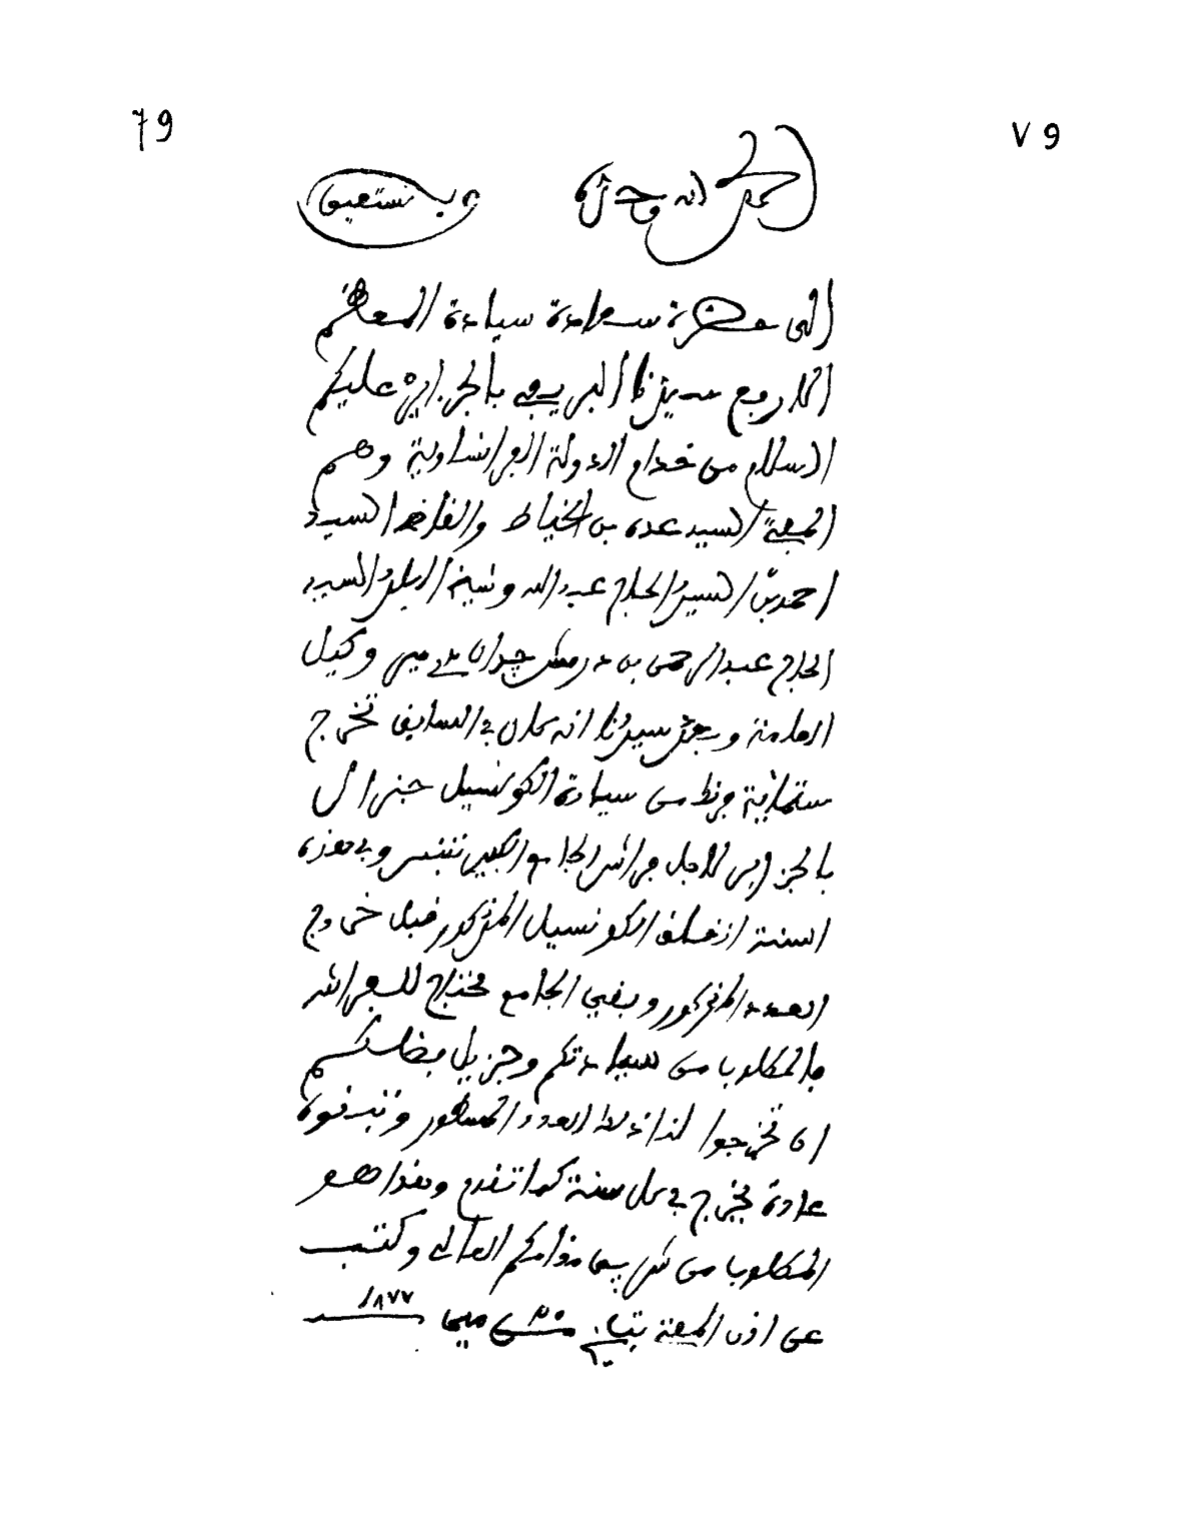 79
٧9
الحمد لله وحده
وبه نستعين
الى حضرة سعادة سيادة المعظم
الارفع سيدنا البريفي بالجزاير عليكم
السلام من خدام الدولة الفرانساوية وهم
المفتي السيد عدة بن الخياط والقاضي السيد
احمد بن السيد الحاج عبد الله وشيخ البلد السيد
الحاج عبد الرحمن بن وكيل
العامة سيدنا انه كان في السابق تخرج
ستماية فرنك من سيادة الكونسيل جنرال
بالجزاير لاجل فراش الجامع الكبير بتنس وفي هذه
السنة الكونسيل المذكور قبل خروج
العدد المذكور وبقي الجامع محتاج للفراش
فالمطلوب من سيادتكم وجزيل فضلكم
ان تخرجوا لنا هذا العدد المسطور
عادة يخرج في كل سنة كما تقدم وهذا هو
المطلوب من شريف مقامكم العالي وكتب
عن اذن المفتي ٢٥ مي ١٨٧٧